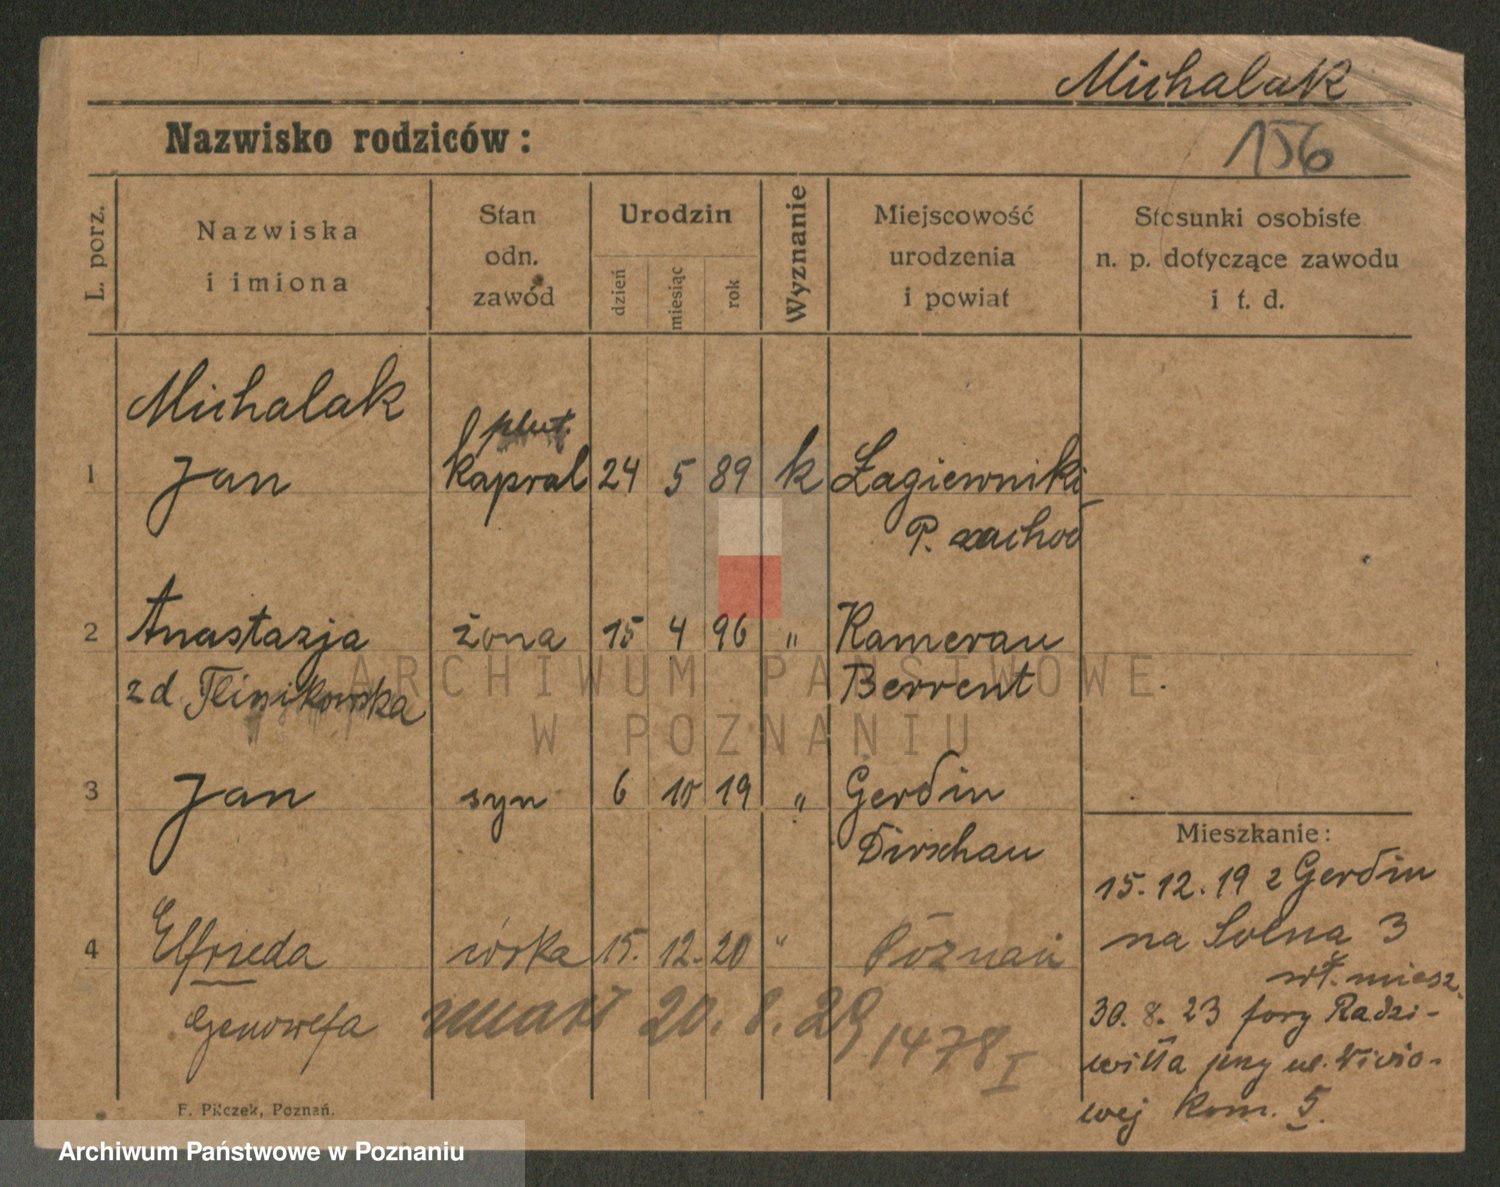 Michalak
Nazwisko rodziców:
156
L. porz.
Nazwiska
i imiona
Stan
odn.
zawód
Urodzin
dzień
miesiąc
rok
Wyznanie
Miejscowość
urodzenia
i powiat
Stosunki osobiste
n. p. dotyczące zawodu
i t. d.
Michalak
plut.
1 Jan kapral 24 5 89 k Łagiewniki
P. zachod
2 Anastazja żona 15 4 96 " Kamerau
z d Berrent
3 Jan syn 6 10 19 " Gerdin
Dirschau
4 Elfrieda córka 15. 12. 20 " Poznań
Genowefa
umarł 20. 8. 29
1478 I
Mieszkanie:
15. 12. 19 z Gerdin
na Solna 3
wł. miesz.
30. 8. 23 fory Radzi-
wiłła przy ul.
wej kom. 5.
F. Pilczek, Poznań.
ARCHIWUM PAŃSTWOWE
W POZNANIU
Archiwum Państwowe w Poznaniu